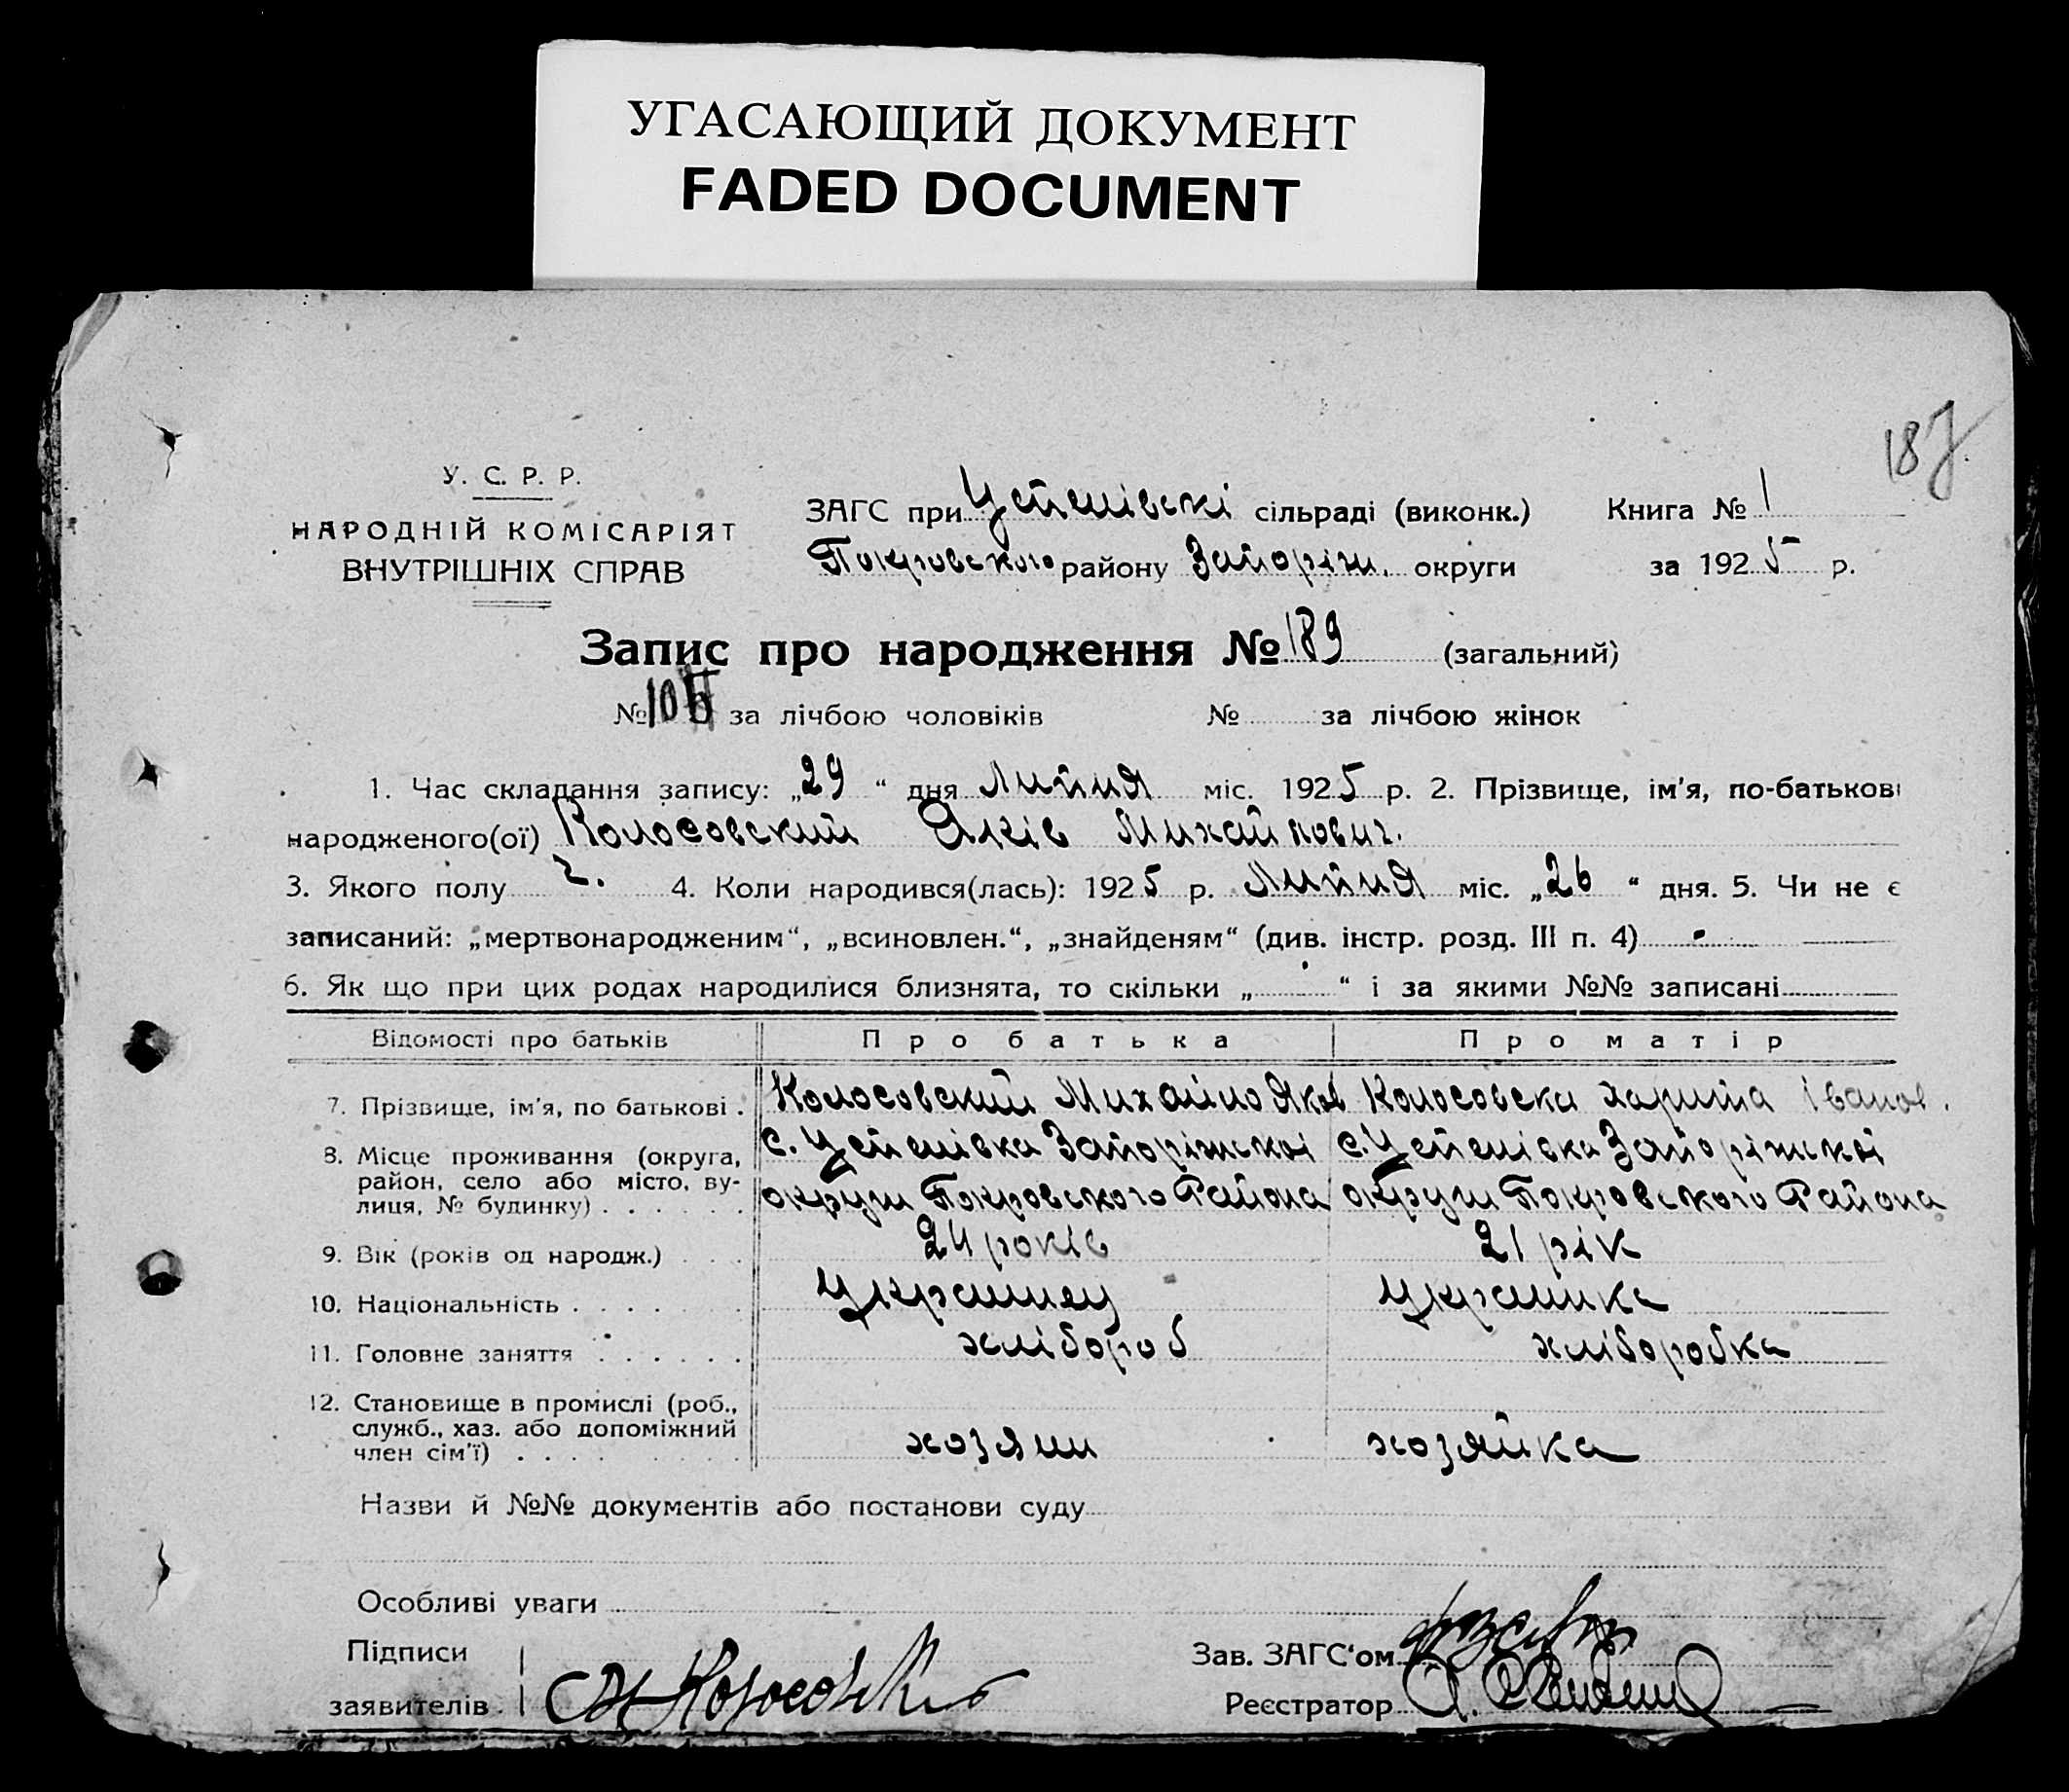 УГАСАЮЩИЙ ДОКУМЕНТ
FADED DOCUMENT
187
У. С. Р. Р.
НАРОДНІЙ КОМІСАРІЯТ
ВНУТРІШНІХ СПРАВ
ЗАГС при Успенівскі сільраді (виконк.) Книга № 1
Покровського району Запоріж. округи за 1925 р.
Запис про народження № 189 (загальний)
№ 10 за лічбою чоловіків № за лічбою жінок
1. Час складання запису: „29“ дня Липня міс. 1925 р. 2. Прізвище, ім'я, по-батькові
народженого(ої) Колосовский Яків Михайлович.
3. Якого полу ч. 4. Коли народився(лась): 1925 р. Липня міс. „26“ дня. 5. Чи не є
записаний: „мертвонародженим“, „всиновлен.“, „знайденям“ (див. інстр. розд. III п. 4)
6. Як що при цих родах народилися близнята, то скільки „ “ і за якими №№ записані
Відомості про батьків Про батька Про матір
7. Прізвище, ім'я, по батькові . Колосовский Михайло Яков Колосовска Харитта Іванов.
8. Місце проживання (округа, с. Успенівка Запоріжскоі с. Успенівка Запоріжскоі
район, село або місто, ву-
лиця, № будинку) . . . . . . округи Покровського Района округи Покровського Района
9. Вік (років од народж.) . . . 24 років 21 рік
10. Національність . . . . . . . Украинец Украинка
11. Головне заняття . . . . . . хлібороб хліборобка
12. Становище в промислі (роб.,
служб., хаз. або допоміжний
член сім'ї) . . . . . . . . . хозяин хозяйка
Назви й №№ документів або постанови суду
Особливі уваги
Підписи
Зав. ЗАГС‘ом
заявителів
Реєстратор